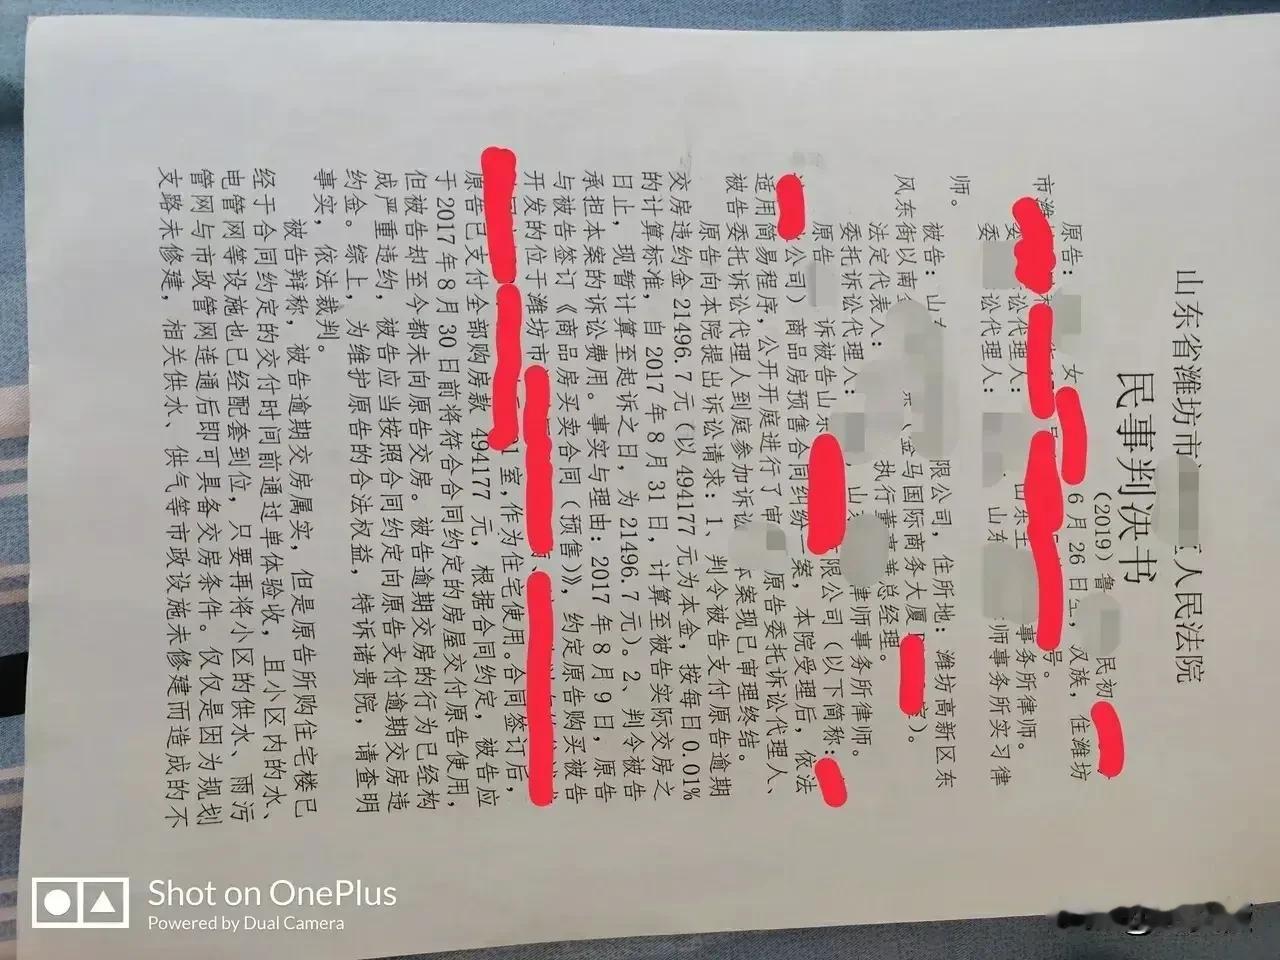 山东省潍坊市 人民法院
民事判决书
(2019)鲁 民初
原告: 女 6月26日 汉族,住潍坊
市潍 号。
委 讼代理人: 山东 事务所律师。
委 讼代理人: 山东 师事务所实习律
师。
被告:山 限公司,住所地:潍坊高新区东
风东街以南金 (金马国际商务大厦 )。
法定代表人: 执行董事兼总经理。
委托诉讼代理人: ,山 律师事务所律师。
原告 诉被告山东 有限公司(以下简称:
公司)商品房预售合同纠纷一案,本院受理后,依法
适用简易程序,公开开庭进行了审 原告委托诉讼代理人、
被告委托诉讼代理人到庭参加诉讼 本案现已审理终结。
原告向本院提出诉讼请求:1、判令被告支付原告逾期
交房违约金21496.7元(以494177元为本金,按每日0.01%
的计算标准,自2017年8月31日,计算至被告实际交房之
日止,现暂计算至起诉之日,为21496.7元)。2、判令被告
承担本案的诉讼费用。事实与理由:2017年8月9日,原告
与被告签订《商品房买卖合同(预售)》,约定原告购买被告
开发的位于潍坊市
1室,作为住宅使用。合同签订后,
原告已支付全部购房款494177元,根据合同约定,被告应
于2017年8月30日前将符合合同约定的房屋交付原告使用,
但被告却至今都未向原告交房。被告逾期交房的行为已经构
成严重违约,被告应当按照合同约定向原告支付逾期交房违
约金。综上,为维护原告的合法权益,特诉诸贵院,请查明
事实,依法裁判。
被告辩称,被告逾期交房属实,但是原告所购住宅楼已
经于合同约定的交付时间前通过单体验收,且小区内的水、
电管网等设施也已经配套到位,只要再将小区的供水、雨污
管网与市政管网连通后即可具备交房条件。仅仅是因为规划
支路未修建,相关供水、供气等市政设施未修建而造成的不
Shot on OnePlus
Powered by Dual Camera